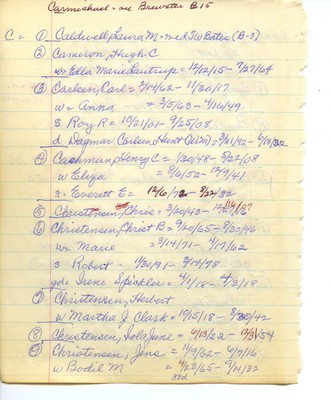 Carmichael - see Brewster B 15
C = ① Caldwell, Laura M = med J W Bates (B-3)
② Cameron, Hugh C
w = Ella Marie Lautrup = 12/12/15 - 9/27/64
③ Carlsen, Carl = 2/14/62 - 11/20/17
w = Anna = 3/5/63 - 4/16/49
s Roy R = 10/21/01 - 9/25/08
d Dagmar Carlsen Hunt (Wm) = 3/21/92 - 6/18/32
④ Cashman, Henry C = 1/20/48 - 5/22/08
w Eliza = 8/6/52 - 12/9/41
s = Everett E = 12/6/72 - 8/22/32
⑤ Christensen, Chris = 3/20/43 -
⑥ Christensen, Christ B = 9/20/65 - 8/30/46
w = Marie = 3/14/71 - 4/17/62
s Robert - 1/30/91 - 3/14/78
gd = Irene Spickler = 4/1/18 - 4/3/18
⑦ Christensen, Herbert
w Martha J Clark = 10/5/18 - 8/30/42
⑧ Christensen, Iola June = 6/13/22 - 12/31/54
⑨ Christensen, Jens = 11/9/62 - 6/7/16
w Bodil M = 4/22/65 - 9/21/32